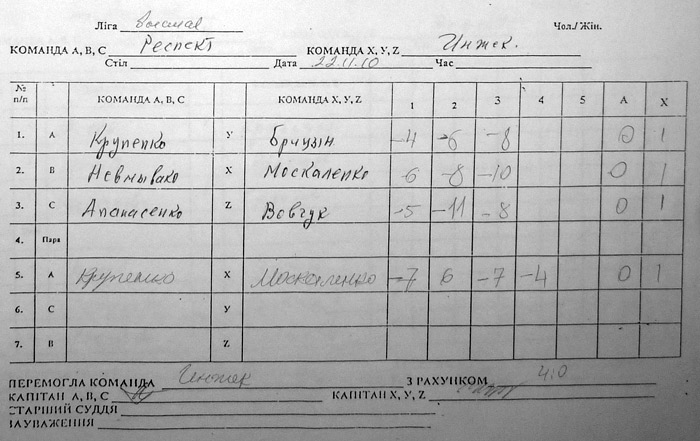 Ліга восьма Чол./Жін.
КОМАНДА A, B, C Респект КОМАНДА X, Y, Z Инжек.
Стіл Дата 22.11.10 Час
№ п/п КОМАНДА A, B, C КОМАНДА X, Y, Z 1 2 3 4 5 A X
1. A Крупенко У Брицын -4 -6 -8 0 1
2. B Невмывако X Москаленко -6 -8 -10 0 1
3. C Апанасенко Z Вовчук -5 -11 -8 0 1
4. Пара
5. A Крупенко X Москаленко -7 6 -7 -4 0 1
6. C У
7. B Z
ПЕРЕМОГЛА КОМАНДА Инжек З РАХУНКОМ 4:0
КАПІТАН A, B, C КАПІТАН X, Y, Z
СТАРШИЙ СУДДЯ
ЗАУВАЖЕННЯ